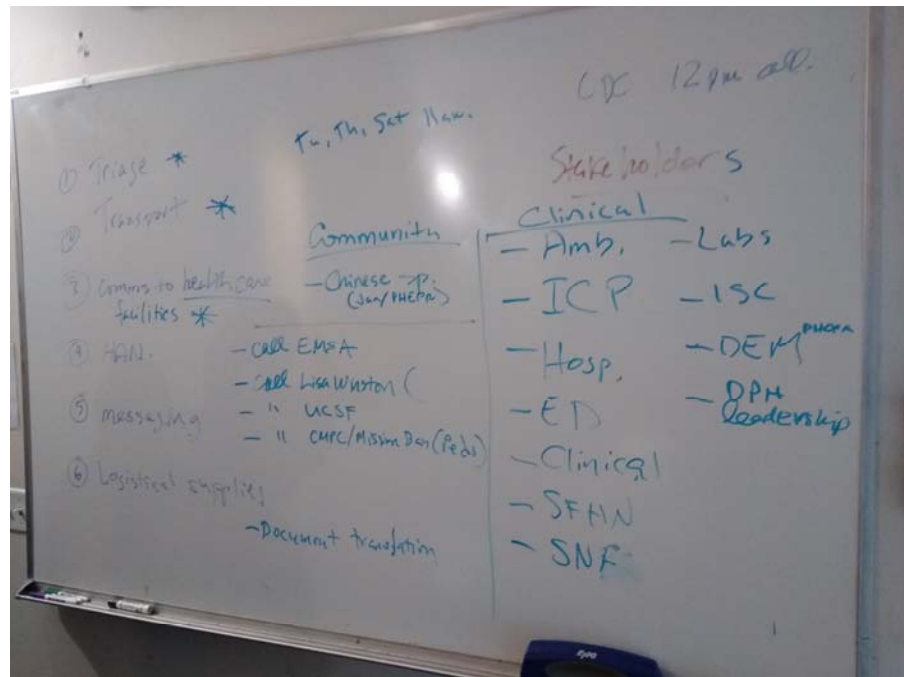 CDC 12pm call.
Tu, Th, Sat 11am.
① Triage *
② Transport *
③ Comms to health care
facilities *
④ HAN.
⑤ messaging
⑥ Logistical supplies
Community
- Chinese
- Call EMSA
- Call Lisa Winston (
- " UCSF
- " CMPC/Mission Bay (Peds)
- Document translation
Stakeholders
Clinical
- Amb.
- ICP
- Hosp.
- ED
- Clinical
- SFHN
- SNF
- Labs
- ISC
- DEM
- DPH
leadership
expo